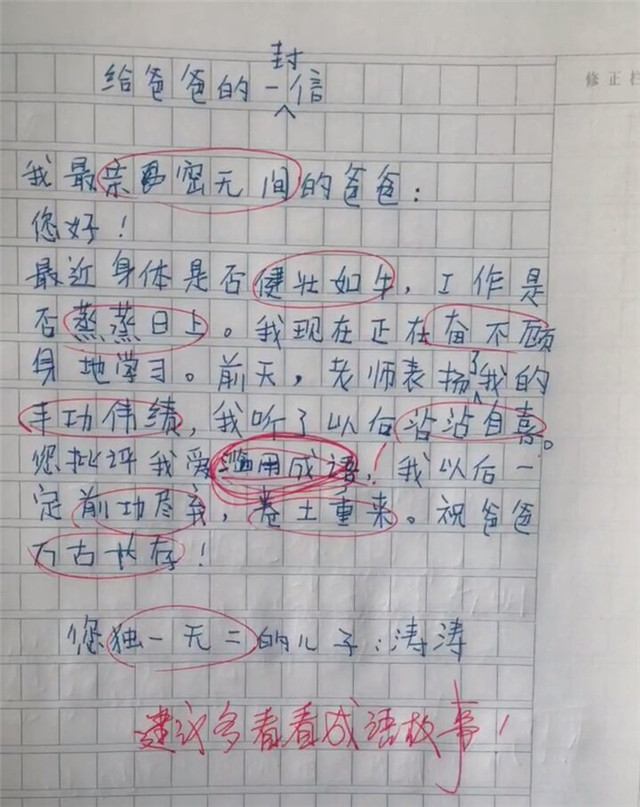 修正栏
给爸爸的一封信
我最亲密无间的爸爸：
您好！
最近身体是否健壮如牛，工作是
否蒸蒸日上。我现在正在奋不顾
身地学习。前天，老师表扬了我的
丰功伟绩，我听了以后沾沾自喜。
您批评我爱滥用成语，我以后一
定前功尽弃，卷土重来。祝爸爸
万古长存！
您独一无二的儿子：涛涛
建议多看看成语故事！